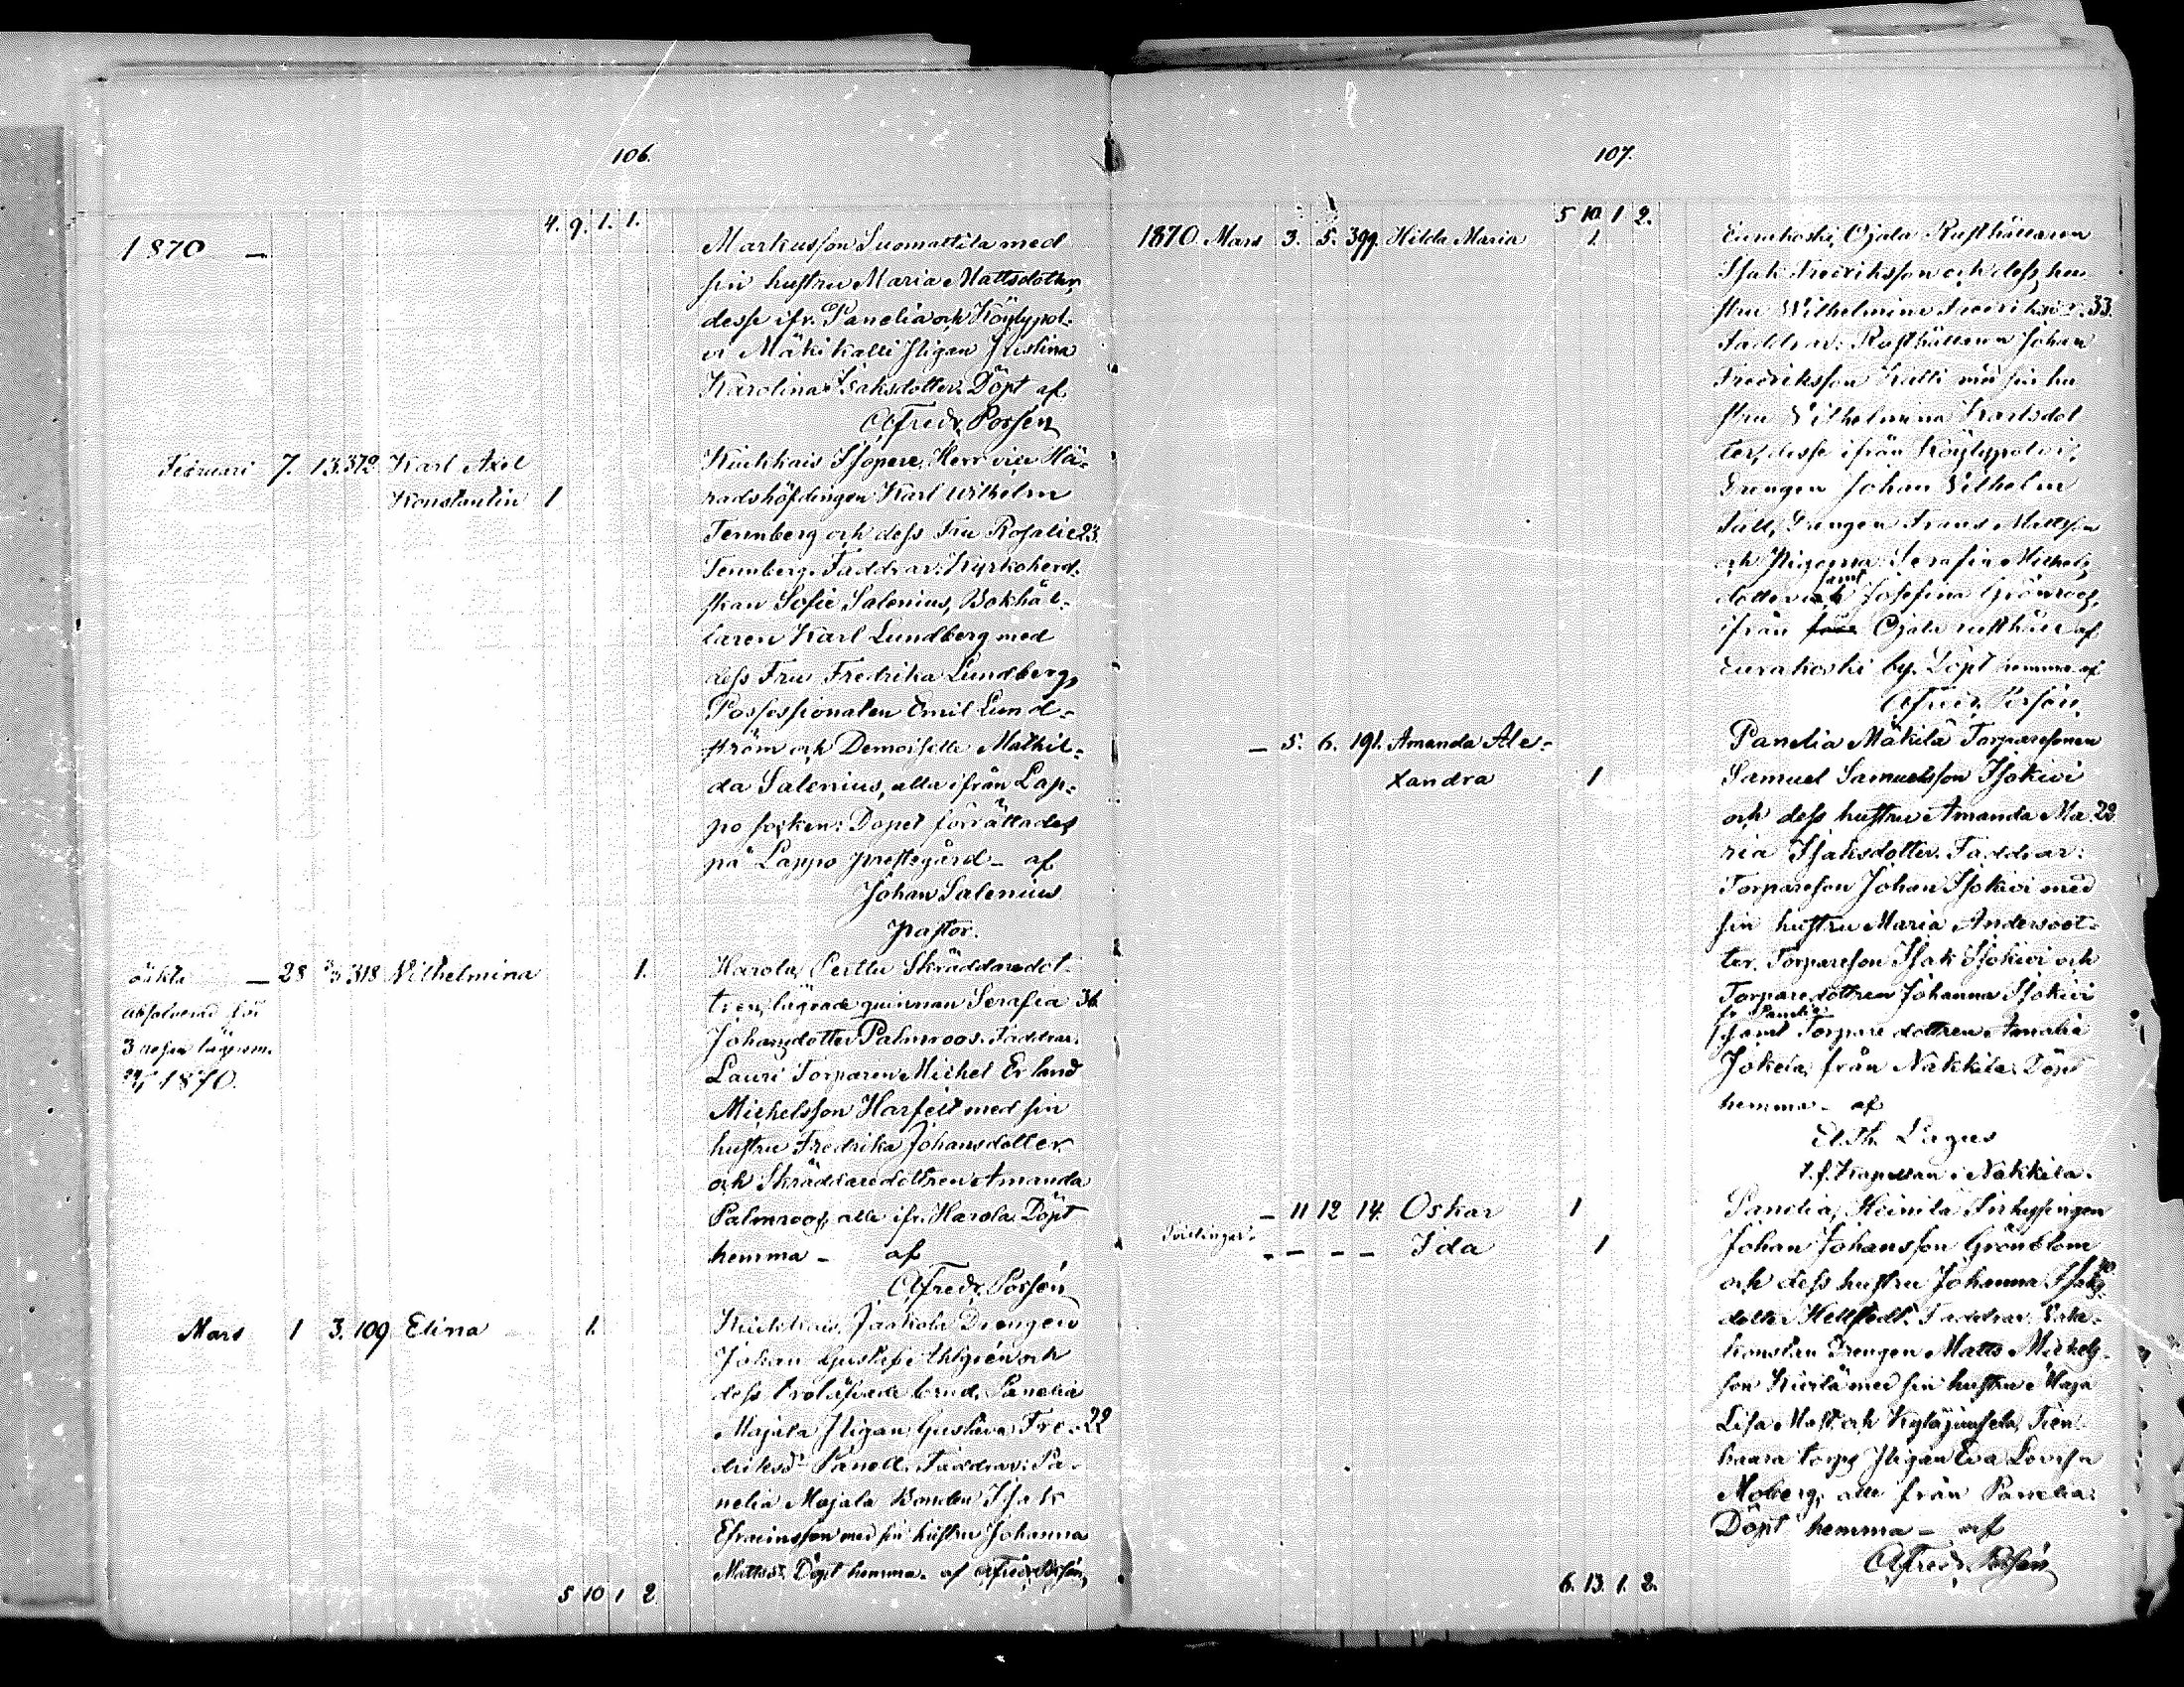 106.
4. 9. 1. 1.
1870 —
Markusson Suomattila med
sin hustru Maria Mattsdotter,
desse ifr. Panelia och Köylypol-
vi Mäkikalli Pigan Justina
Karolina Isaksdotter. Döpt af
Alfredr. Porsén
Februari 7. 13. 372 Karl Axel
Konstantin 1
Kiukkais Isopere, Herr vice Hä-
radshöfdingen Karl Wilhelm
Tennberg och dess Fru Rosalie 23.
Tennberg. Faddrar: Kyrkoherd-
skan Sofie Salenius, Bokhål-
laren Karl Lundberg med
dess Fru Fredrika Lundberg,
Possessionaten Emil Lund-
ström och Demoiselle Mathil-
da Salenius, alla ifrån Lap-
po socken: Dopet förrättades
på Lappo prestegård – af
Johan Salenius
pastor.
oäkta — 28 3/3 318 Vilhelmina 1.
absolverad för
1870.
Harola, Perttu Skräddaredot-
tren, lägrade quinnan Serafia 36
Johansdotter Palmroos. Faddrar:
Lauri Torparen Michel Erland
Michelsson Harfelt med sin
hustru Fredrika Johansdotter
och Skräddaredottren Amanda
Palmroos, alle ifr. Harola. Döpt
hemma – af
Alfredr. Porsén
Mars 1 3. 109 Elina 1.
Kiukkais, Jaakola Drengen
Johan Gustaf Ahlgrén och
dess trolofvade brud, Panelia
Majala Pigan Gustava Fre- 22
driksd:r Panell. Faddrar: Pa-
nelia Majala Bonden Isak
Efraimsson med sin hustru Johanna
Mattsd:r Döpt hemma. af Alfredr. Porsén
5 10 1 2
107.
5 10 1 2.
1870 Mars 3. 5. 399. Hilda Maria 1.
Eurakoski, Ojala Rusthållaren
Isak Fredriksson och dess hu-
stru Wilhelmina Fredriksd:r. 33.
Faddrar: Rusthållaren Johan
Fredriksson Kalli med sin hu
stru Vilhelmina Karlsdot
ter, desse ifrån Köylypolvi,
Drengen Johan Vilhelm
Drengen Frans Mattsson
och Pigorna Serafia Michels
samt
dotter och Josefina Grönroos,
ifrån Ojala rusthåll af
Eurakoski by. Döpt hemma af
Alfredr. Porsén
— 5. 6. 191. Amanda Ale-
xandra 1
Panelia Mäkilä Torparesonen
Samuel Samuelsson Isokivi
och dess hustru Amanda Ma 22
ria Isaksdotter. Faddrar:
Torpareson Johan Isokivi med
sin hustru Maria Andersdot-
ter, Torpareson Isak Isokivi och
Torparedottren Johanna Isokivi
fr. Panelia
samt Torparedottren Amalia
Jokela, från Nakkila. Döpt
hemma – af
El. Th. Lagus
t.f. Kapellan i Nakkila.
— 11 12 14. Oskar 1
Tvillingar.
— — — — Ida 1
Panelia, Heinilä Inhysingen
Johan Johansson Grönblom
och dess hustru Johanna Isaks 40
dotter Hellstedt. Faddrar:
Drengen Matts Michels-
son med sin hustru Maja
Lisa
torps Pigan Eva Lovisa
Moberg, alle från Panelia.
Döpt hemma – af
Alfredr. Porsén
6. 13. 1. 2.